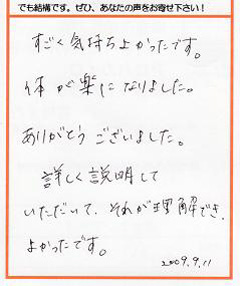 でも結構です。ぜひ、あなたの声をお寄せ下さい！
すごく気持ちよかったです。
体が楽になりました。
ありがとうございました。
詳しく説明して
いただいて、それが理解でき、
よかったです。
2009.9.11